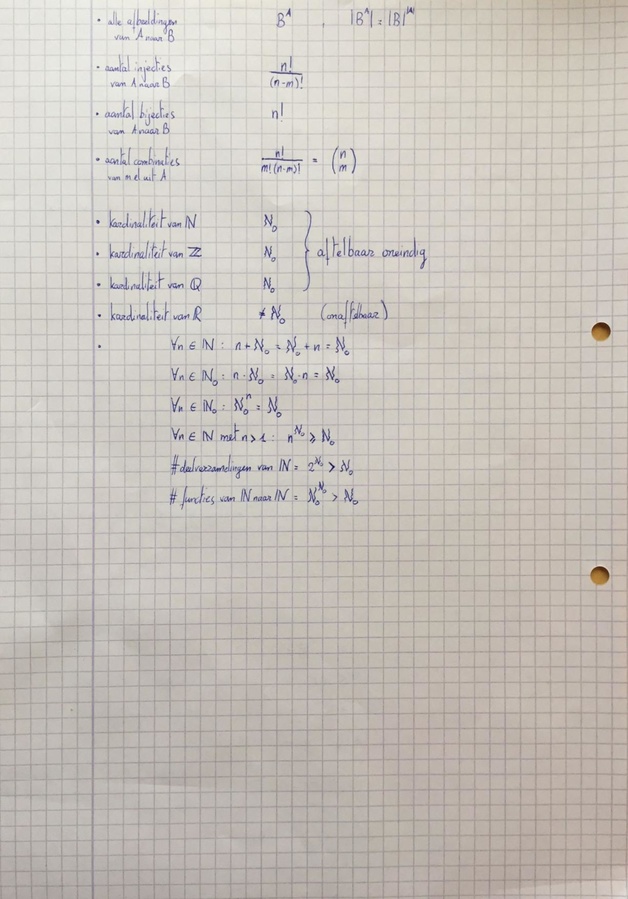 • alle afbeeldingen van A naar B    B^A , |B^A| = |B|^|A|
• aantal injecties van A naar B    n!/(n-m)!
• aantal bijecties van A naar B    n!
• aantal combinaties van m el uit A    n!/(m!(n-m)!) = (n m)
• kardinaliteit van ℕ    ℵ₀
• kardinaliteit van ℤ    ℵ₀ } aftelbaar oneindig
• kardinaliteit van ℚ    ℵ₀
• kardinaliteit van ℝ    ≠ ℵ₀ (onaftelbaar)
• ∀n ∈ ℕ : n + ℵ₀ = ℵ₀ + n = ℵ₀
∀n ∈ ℕ₀ : n · ℵ₀ = ℵ₀ · n = ℵ₀
∀n ∈ ℕ₀ : ℵ₀^n = ℵ₀
∀n ∈ ℕ met n > 1 : n^ℵ₀ > ℵ₀
# deelverzamelingen van ℕ = 2^ℵ₀ > ℵ₀
# functies van ℕ naar ℕ = ℵ₀^ℵ₀ > ℵ₀